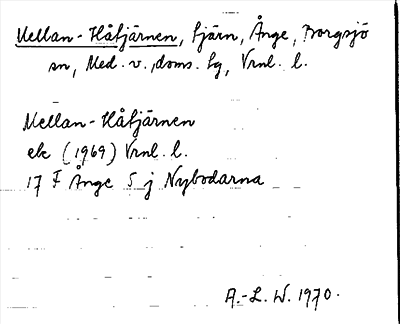 Mellan-Håtjärnen, tjärn, Ånge, Borgsjö
sn, Med. v. doms. tg, Vrnl. l.
Mellan-Håtjärnen
ek (1969) Vrnl. l.
17 F Ånge 5 j Nybodarna
A.-L. W. 1970.